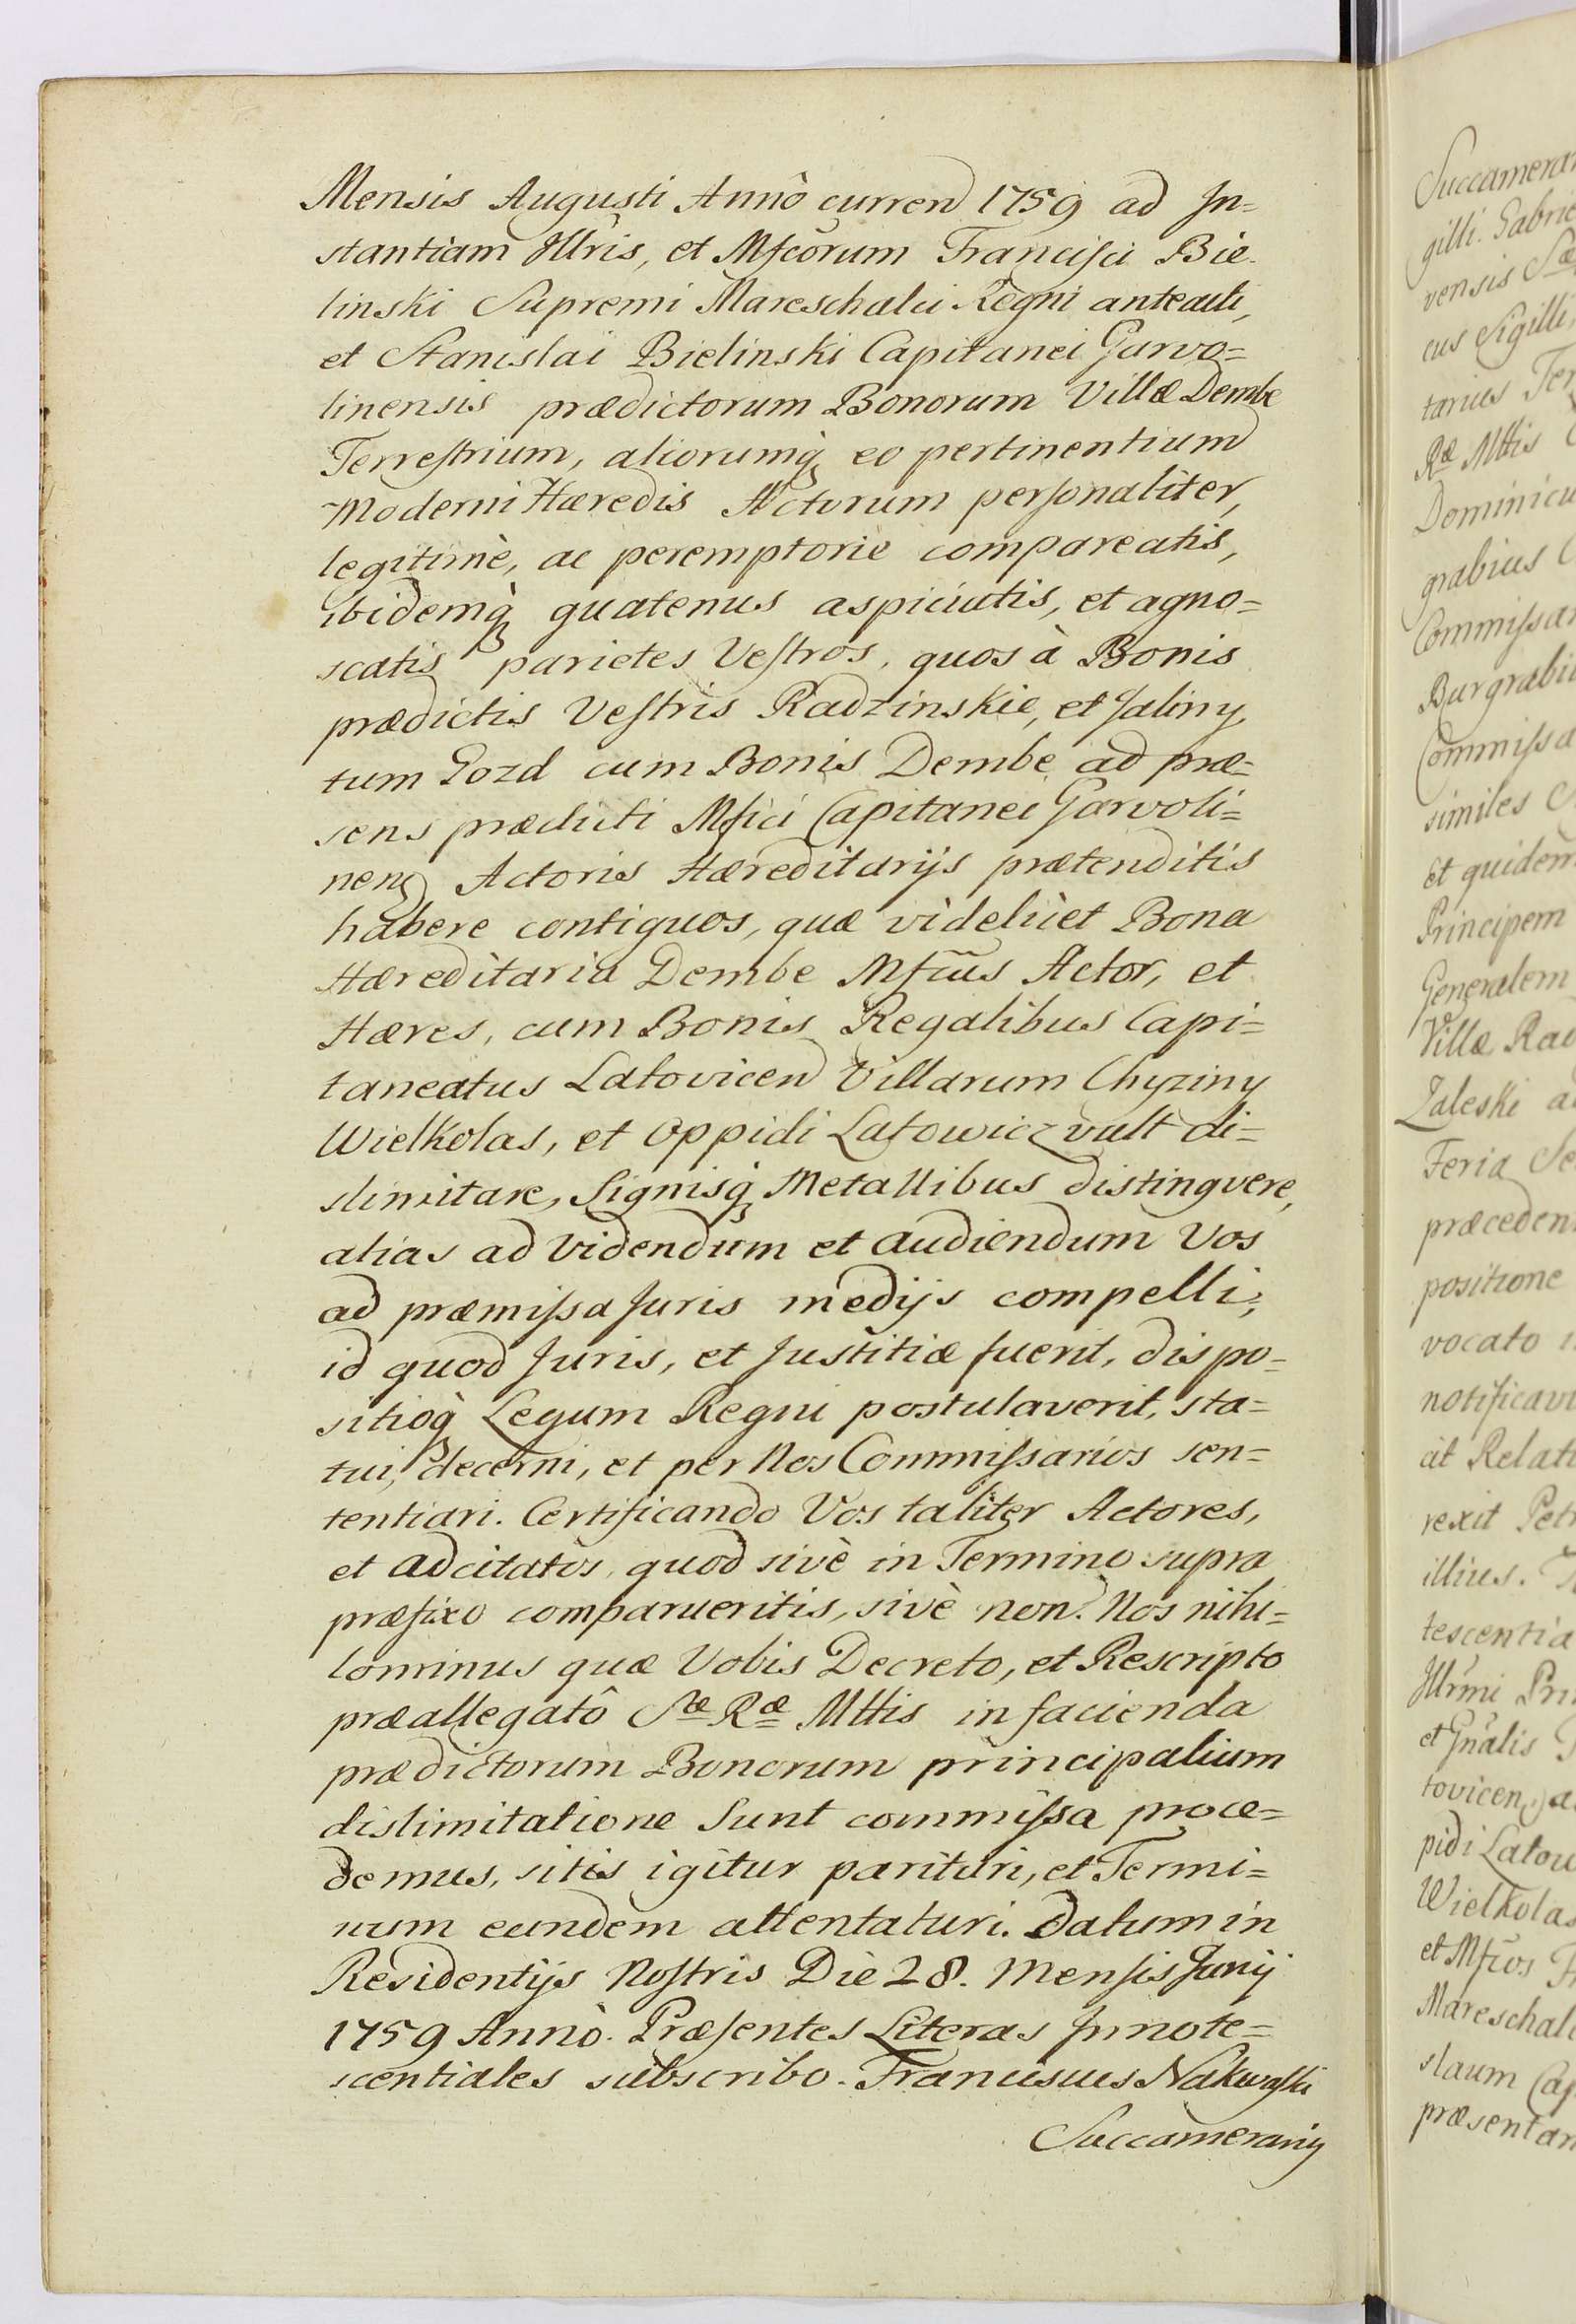 Mensis Augusti Annô curren 1759 ad In=
stantiam Illris, et Mfcorum Francisci Bie-
linski Supremi Mareschalci Regni anteacti,
et Stanislai Bielinski Capitanei Garvo=
linensis prædictorum Bonorum Villæ Dembe
Terrestrium, aliorumq́ eo pertinentium
Moderni Hæredis Actorum personaliter,
legitimè, ac peremptorie compareatis,
ibidemq́ quatenus aspiciatis, et agno=
scatis parietes Vestros, quos à Bonis
prædictis Vestris Radzinskie, et Jaliny,
tum Gozd cum Bonis Dembe ad præ=
sens prædicti Mfici Capitanei Garvoli=
nen Actoris Hæreditarijs prætenditis
habere contiguos, quæ videlicet Bona
Hæreditaria Dembe Mfcus Actor, et
Hæres, cum Bonis Regalibus Capi=
taneatus Latovicen Villarum Chyziny
Wielkolas, et Oppidi Latowicz vult di=
slimitare, Signisq́ Metallibus distingvere,
alias ad Videndum et audiendum Vos
ad præmissa Juris medijs compelli,
id quod Juris, et Justitiæ fuerit, dispo=
sitioq́ Legum Regni postulaverit, sta=
tui, decerni, et per Nos Commissarios sen=
tentiari. Certificando Vos taliter Actores,
et adcitatos, quod sivè in Termino supra
præfixo comparueritis, sivè non. Nos nihi=
lominus quæ Vobis Decreto, et Rescripto
præallegatô Sæ Ræ Mttis in facienda
prædictorum Bonorum principalium
dislimitatione Sunt commissa proce=
demus, sitis igitur parituri, et Termi=
num eundem attentaturi. Datum in
Residentijs Nostris Die 28. Mensis Junij
1759 Annò. Præsentes Literas Innote=
scentiales subscribo. Franciscus Nakwaski
Succamerariq
Succamera
gilli. Gabrie
vensis Sæ
cus Sigilli,
tarius Ter
Ræ Mttis
Dominicu
grabius C
Commissar
Burgrabiu
Commissa
similes
Et quidem
Principem
Generalem
Villæ Rad
Zaleski a
Feria Se
præceden
positione
vocato
notificavi
cit Relati
rexit Petr
illius.
tescentia
Illrmi Pri
et Gnalis
tovicen, a
pidi Latow
Wielkolas
et Mfcos Fr
Mareschal
slaum Cap
præsentan